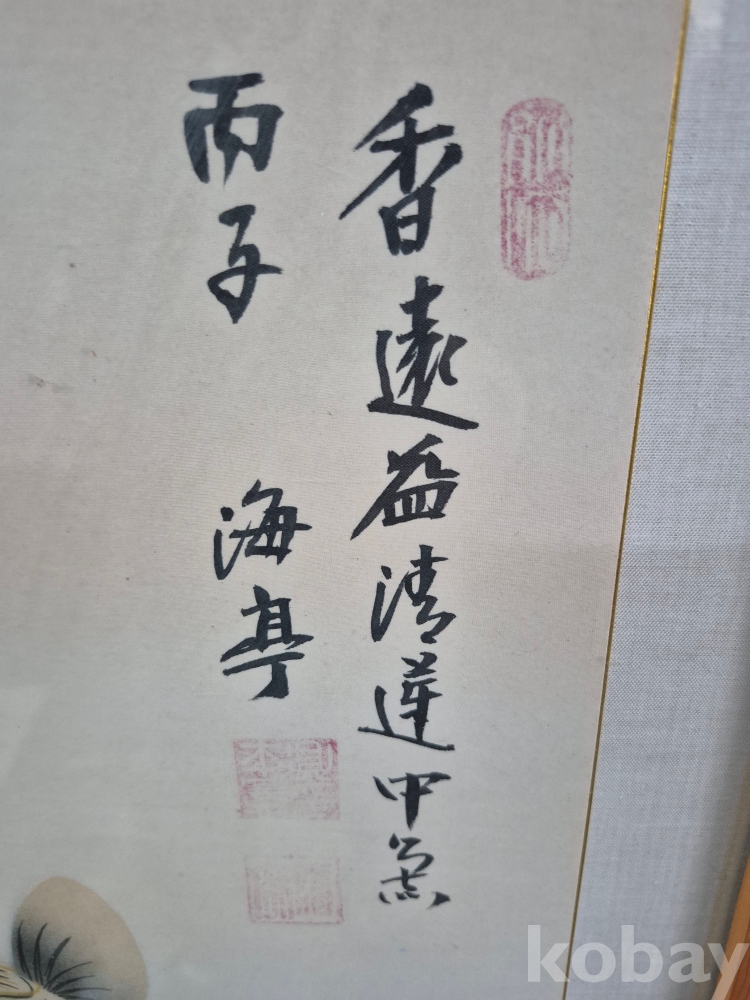 香遠益清蓮中
丙子 海亭
kobay